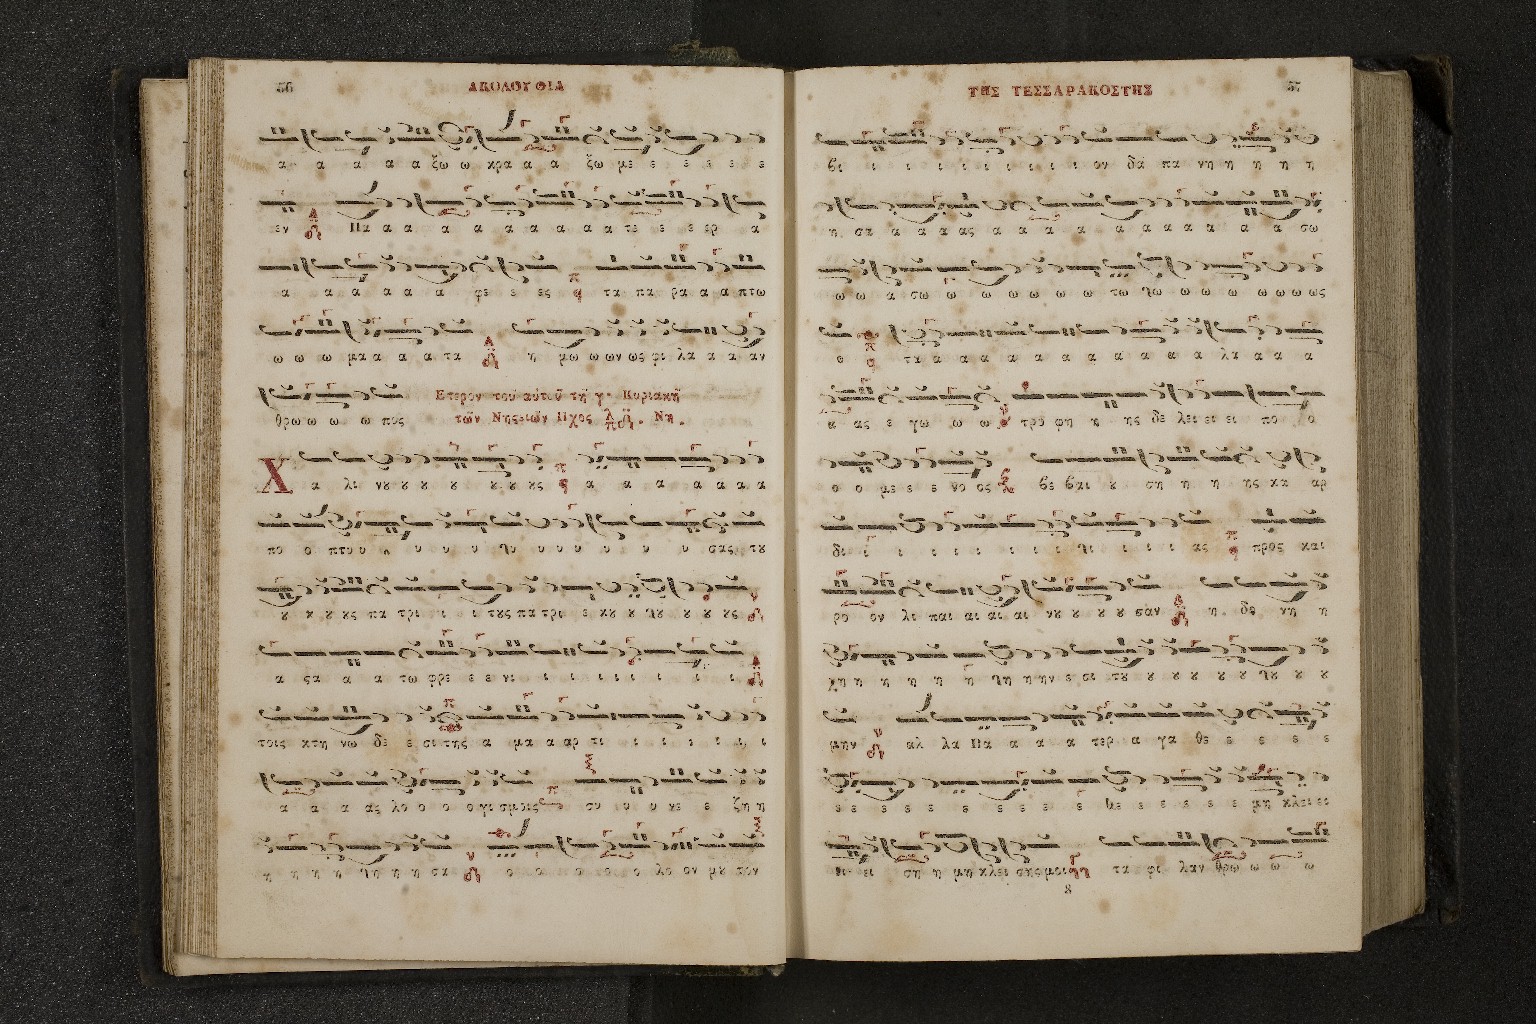 56
ΑΚΟΛΟΥΘΙΑ
α α α α α ξω ω κρα α α ξω με ε ε ε ε ε
εν Πα α α α α α α α α α τε ε ε ερ α
α α α α α α φε ε ες τα πα ρα α α πτω
ω ω ω μα α α α τα η μω ω ων ως φι λα α α αν
θρω ω ω ω πος
Ετερον τού αύτού τή γ. Κυριακή
τών Νηςειών Ηχος Νη.
Χ α λι νȣ ȣ ȣ ȣ ȣ ȣ ȣς α α α α α α α
πο ο πτυ υ υ υ υ θυ υ υ υ υ υ υ σας τȣ
ȣ ȣ ȣ ȣς πα τρι ι ι ι τȣς πα τρι ε κȣ ȣ λȣ ȣ ȣ ȣς
α ςα α α τω φρε ε ε νι ι ι ι ι ι ι ι ι
τοις κτη νω δε ε σι της α μα α αρ τι ι ι ι ι ι ι
α α α ας λο ο ο ο γι σμοις συ υ υ νε ε ζη η
η η η η θη η η σα ο ο ο ο ο λο ον μȣ τον
ΤΗΣ ΤΕΣΣΑΡΑΚΟΣΤΗΣ
57
βι ι ι ι ι ι ι ι ι ον δα πα νη η η η η
η σα α α α ας α α α α α α α α α σω
ω ω α σω ω ω ω ω ω ω τω λω ω ω ω ω ω ω ως
ε τα α α α α α α α α α α α λα α α α
α ας ε γω ω ω τρο φη η ης δε λει ει ει πο ο
ο ο με ε ε νο ος βε βαι ȣ ση η η ης κα αρ
δι ι ι ι ι ι ι ι λι ι ι ι ας προς και
ρο ον λι παι αι αι αι νȣ ȣ ȣ ȣ σαν η δο νη η
χη η η η η η θη η ην ε σι τȣ ȣ ȣ ȣ ȣ ȣ λȣ ȣ ȣ
μην αλ λα Πα α α α τερ α γα θε ε ε ε ε
ε ε ε ε ε ε ε ε ε ε με ε ε ε ε ε μη κλει ει
ει ει ση η μη κλει σης μοι τα φι λαν θρω ω ω ω
8